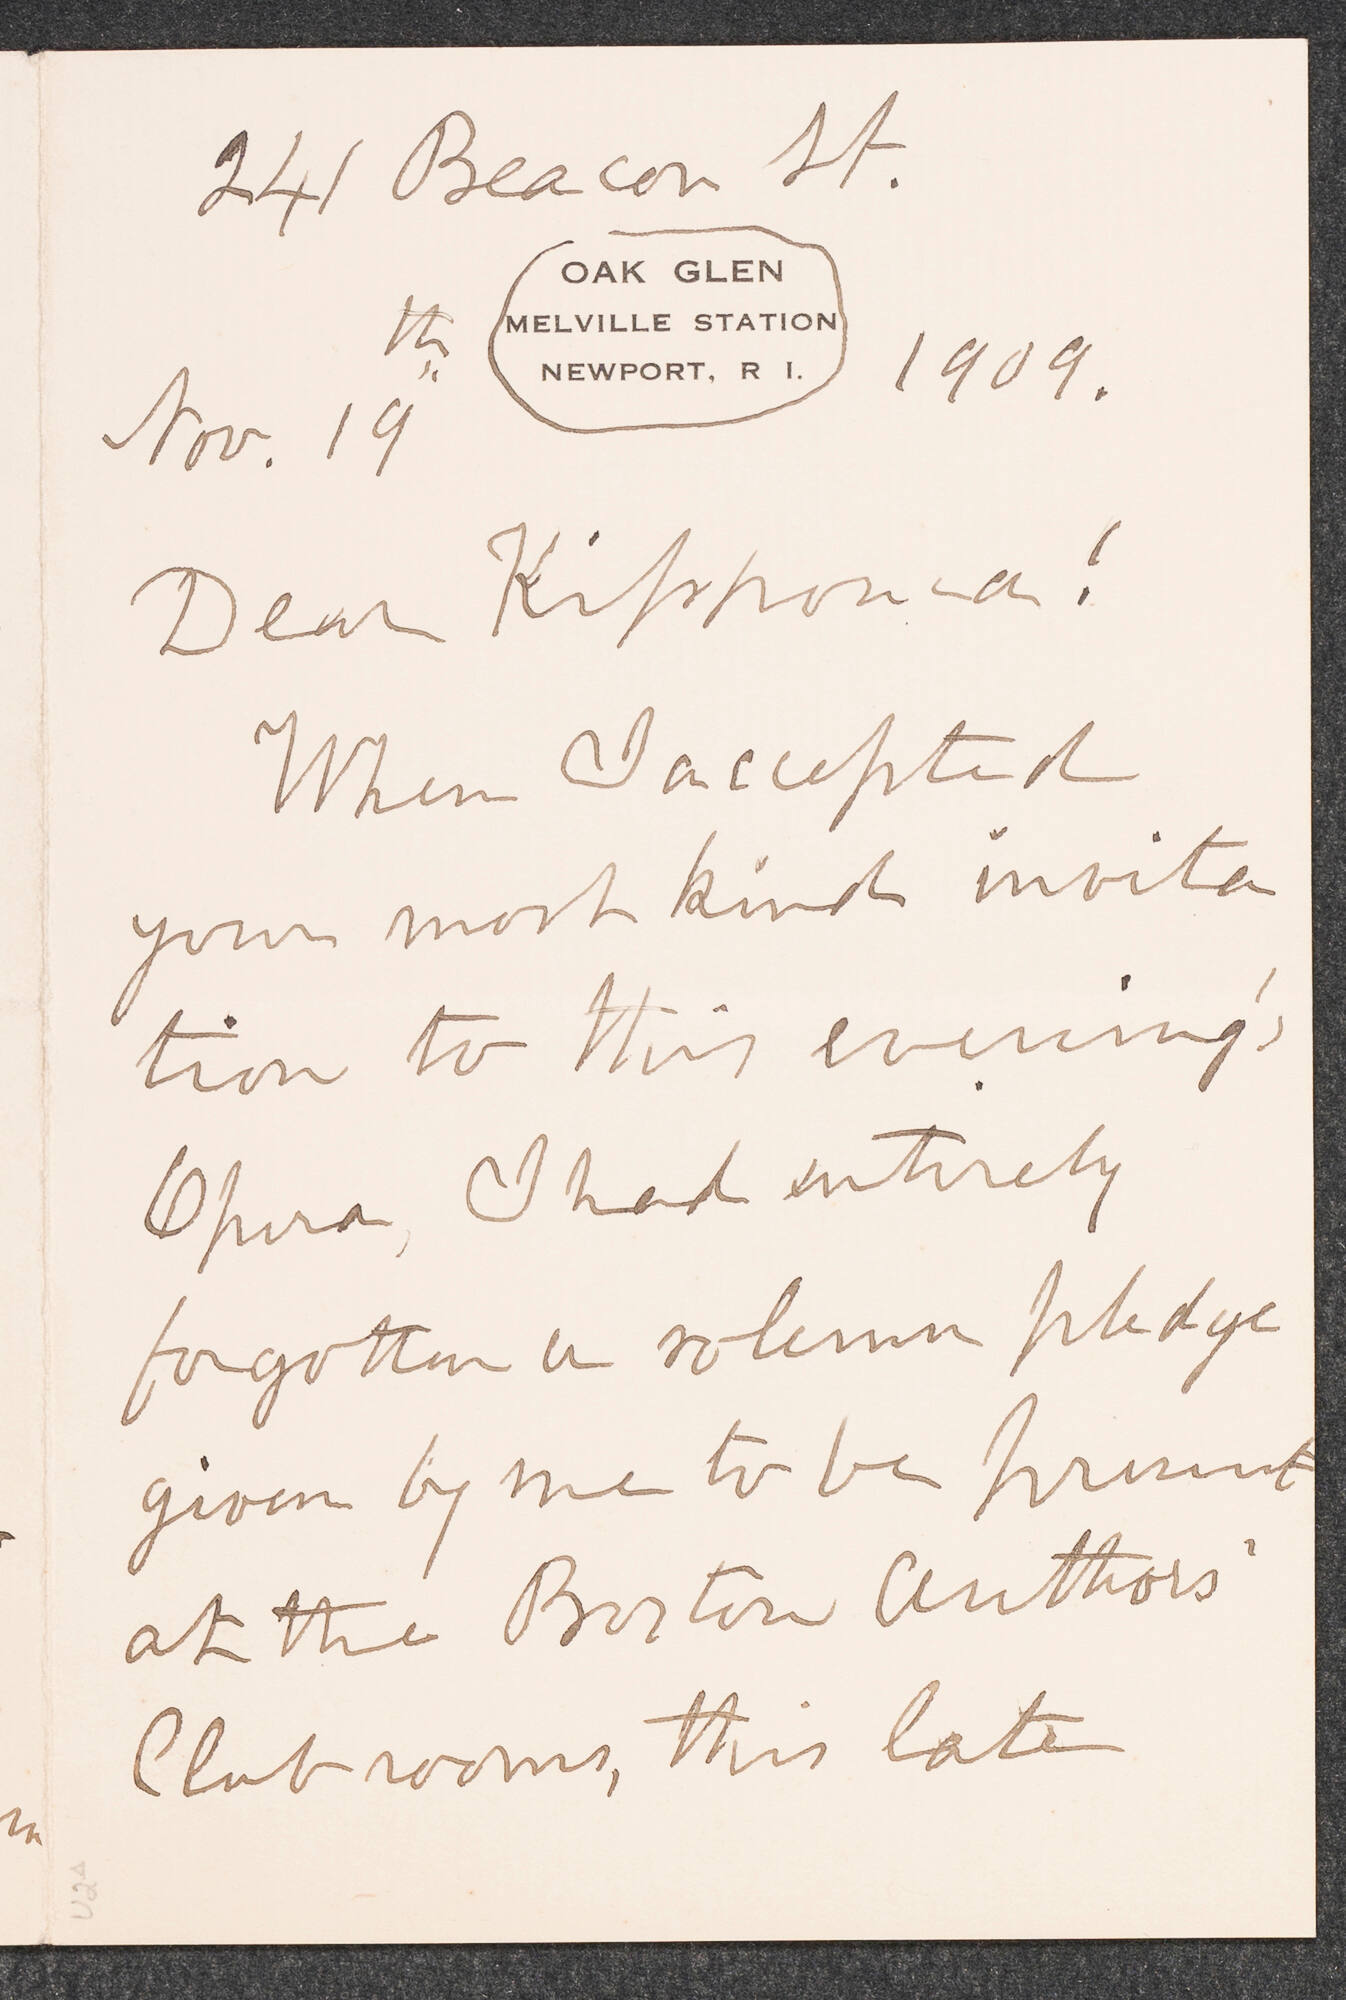 241 Beacon St.
OAK GLEN
MELVILLE STATION
NEWPORT, R I.
Nov. 19th 1909.
Dear Kipponica!
When I accepted
your most kind invita
tion to this evening's
Opera, I had entirely
forgotten a solemn pledge
given by me to be present
at the Boston Authors'
Club rooms, this late